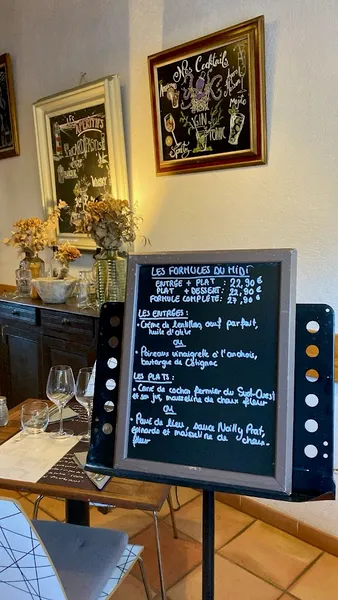 Nos Cocktails
GIN
TONIC
Mojito
Spritz
LES
LES FORMULES DU MIDI
ENTRÉE + PLAT : 22,90 €
PLAT + DESSERT : 22,90 €
FORMULE COMPLÈTE : 27,90 €
LES ENTRÉES :
• Crème de lentilles, oeuf parfait,
huile d'olive
OU
• Poireaux vinaigrette à l'anchois,
boutargue de
LES PLATS :
• Carré de cochon fermier du Sud-Ouest
et son jus, mousseline de choux fleur
OU
• Pavé de lieu, sauce Noilly Prat,
épinards et mousseline de choux-
fleur